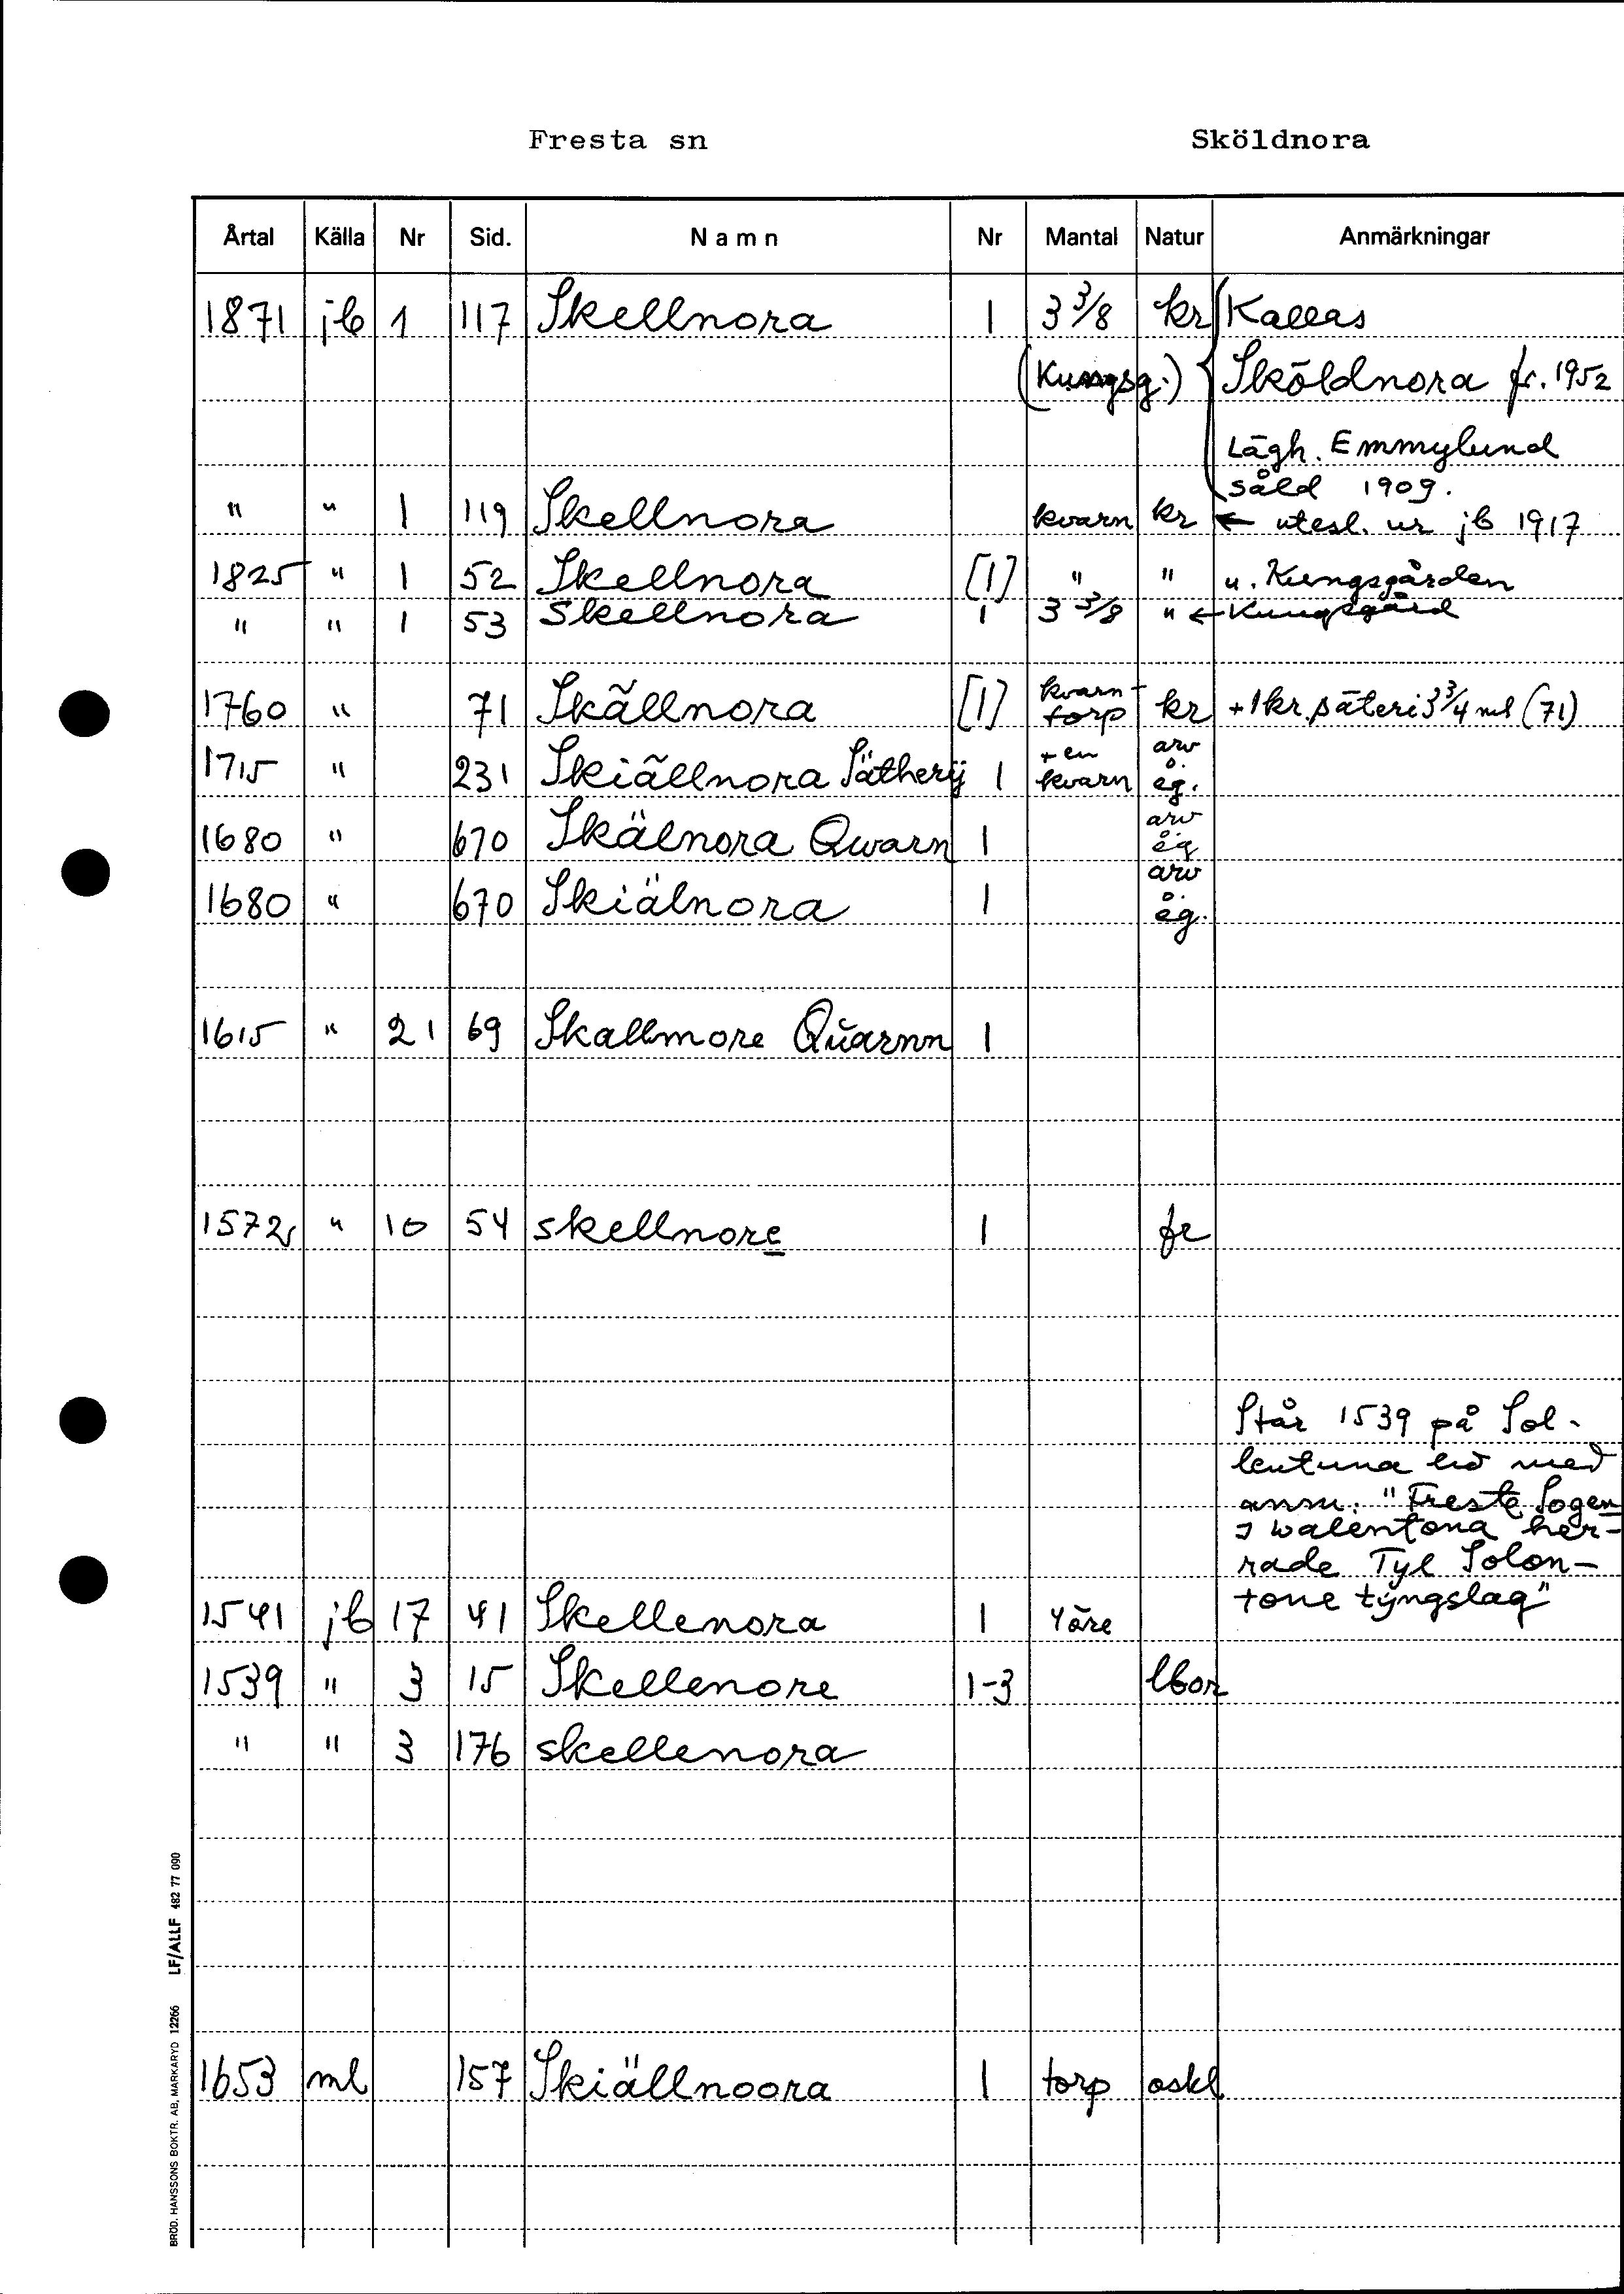 Fresta sn Sköldnora
Årtal Källa Nr Sid. Namn Nr Mantal Natur Anmärkningar
1871 jb 1 117 Skellnora 1 3 3/8 kr Kallas
(Kungsg.) Sköldnora fr. 1952
Lägh. Emmylund
såld 1909.
" " 1 119 Skellnora kvarn kr ← utesl. ur jb 1917
1825 " 1 52 Skellnora [1] " " u. Kungsgården
" " 1 53 Skellnora 1 3 3/8 " ← Kungsgård
1760 " 71 Skällnora [1] kvarn-
torp kr + 1 kr. säteri 3 3/4 ml (71)
1715 " 231 Skiällnora Sätherij 1 + en
kvarn arv
o.
eg.
1680 " 670 Skälnora Qwarn 1 arv
o.
eg
1680 " 670 Skiälnora 1 arv
o.
eg.
1615 " 21 69 Skallmore Quarnn 1
1572 " 10 54 skellnore 1 fr
Står 1539 på Sol-
lentuna hd med
anm: "Freste Sogen
J walentona her-
rade Tyl Solon-
tone tyngslag"
1541 jb 17 41 Skellenora 1 4 öre
1539 " 3 15 Skellenore 1-3 lbor
" " 3 176 skellenora
1653 ml 157 Skiällnoora 1 torp oskl
BRÖD. HANSSONS BOKTR. AB, MARKARYD 12266 LF/ALLF 482 77 090